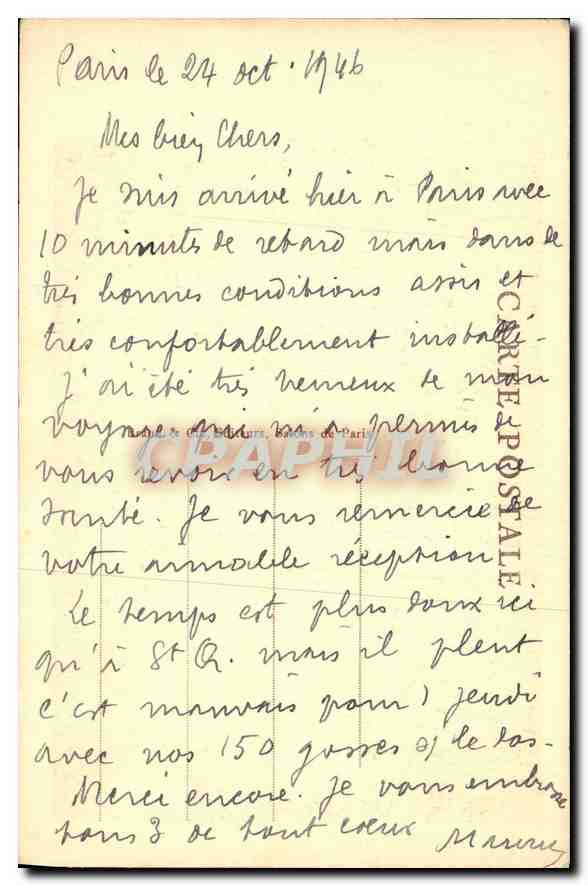 Paris le 24 oct. 1946
Mes bien Chers,
Je suis arrivé hier à Paris avec
10 minutes de retard mais dans de
très bonnes conditions assis et
très confortablement installé.
J'ai été très heureux de mon
voyage qui m'a permis de
vous revoir en très bonne
santé. Je vous remercie de
votre aimable réception
Le temps est plus doux ici
qu'à St Q. mais il pleut
c'est mauvais pour jeudi
avec nos 150 gosses s/ le dos.
Merci encore. Je vous embrasse
tous 3 de tout coeur
CARTE POSTALE
Braun & Cie, Editeurs, Salons de Paris
CPAPHIL